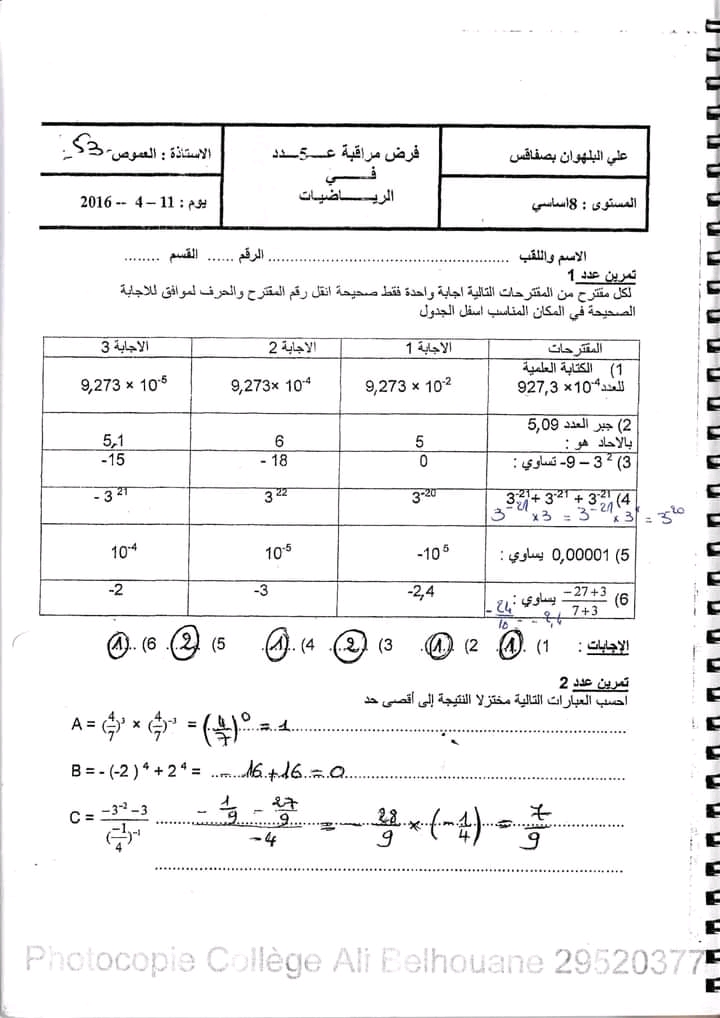 علي البلهوان بصفاقس
فرض مراقبة عـــ5ـــدد
فـــــي
الريـــــاضيـــات
الاستاذة : العموص - S3
المستوى : 8اساسي
يوم : 11 – 4 -- 2016
الاسم واللقب .......... الرقم ...... القسم ........
تمرين عدد 1
لكل مقترح من المقترحات التالية اجابة واحدة فقط صحيحة انقل رقم المقترح والحرف لموافق للاجابة
الصحيحة في المكان المناسب اسفل الجدول
المقترحات الاجابة 1 الاجابة 2 الاجابة 3
1) الكتابة العلمية
للعدد 927,3 ×10⁻⁴ 9,273 × 10⁻² 9,273× 10⁻⁴ 9,273 × 10⁻⁵
2) جبر العدد 5,09
بالاحاد هو : 5 6 5,1
3) -9 – 3² تساوي : 0 - 18 -15
4) 3⁻²¹+ 3⁻²¹ + 3⁻²¹ 3⁻²⁰ 3²² - 3²¹
3⁻²¹ × 3 = 3⁻²¹ × 3¹ = 3²⁰
5) 0,00001 يساوي : -10⁵ 10⁻⁵ 10⁻⁴
6) (-27+3)/(7+3) يساوي : -2,4 -3 -2
-24/10 = -2,4
الإجابات : 1) 1 2) 1 3) 2 4) 1 5) 2 6) 1
تمرين عدد 2
احسب العبارات التالية مختزلا النتيجة إلى أقصى حد
A = (4/7)³ × (4/7)⁻³ = (4/7)⁰ = 1
B = - (-2)⁴ + 2⁴ = - 16 + 16 = 0
C = (-3⁻² -3)/((-1/4)⁻¹) (-1/9 - 27/9)/(-4) = - 28/9 × (-1/4) = 7/9
Photocopie Collège Ali Belhouane 29520377